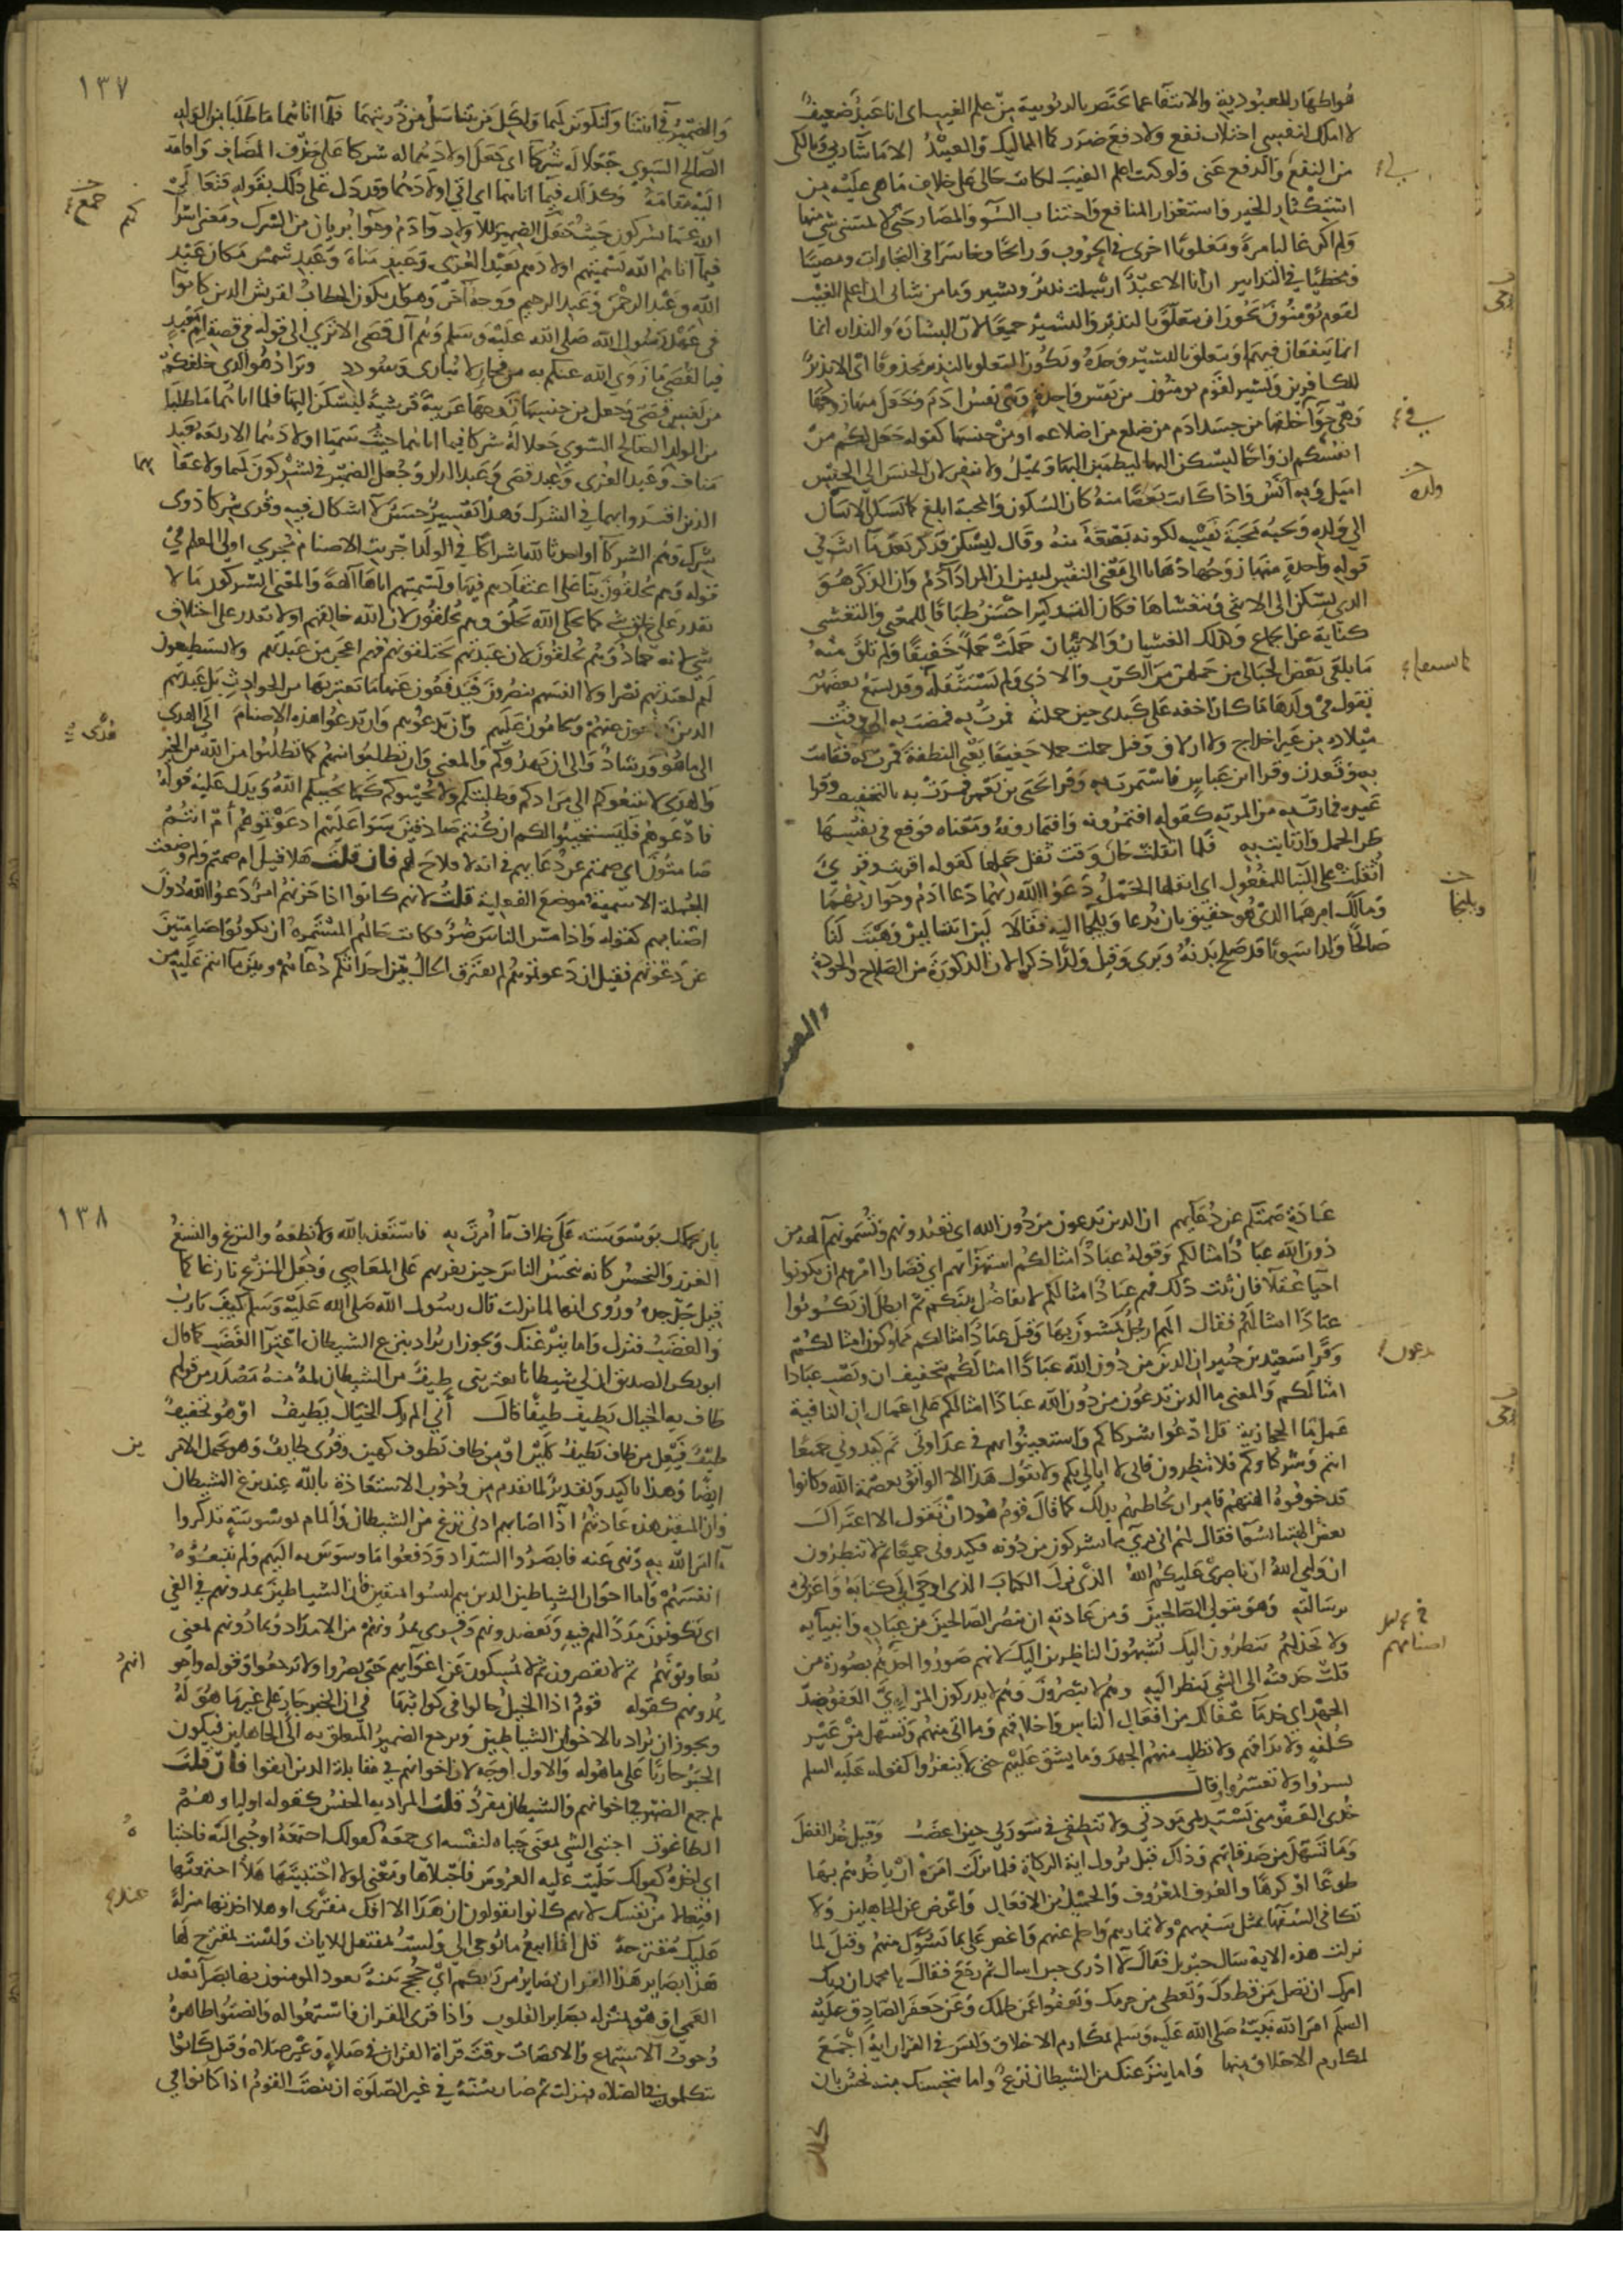 هو اظهار للعبودية والانتفا عما يختص بالربوبية من علم الغيب اى انا عبد ضعيف
لا املك لنفسي اجتلاب نفع ولا دفع ضرر كما المماليك والعبيد الا ما شا ربي ومالكي
من النفع والدفع عني ولو كنت اعلم الغيب لكانت حالي على خلاف ما هي عليه من
استكثار الخير واستغزار المنافع واجتناب السو والمضار حتى لا يمسني شي منها
ولم اكن غالبا مرة ومغلوبا اخرى في الحروب ورابحا وخاسرا في التجارات ومصيبا
ومخطيا في التدابير ان انا الا عبد ارسلت نذيرا وبشيرا وما من شاني اني اعلم الغيب
لقوم يؤمنون يجوز ان يتعلق بالنذير والبشير جميعا لان البشارة والنذارة انما
انما ينفعان فيهم او يتعلق بالبشير وحده ويكون المتعلق بالنذير محذوفا اى الا نذير
للكافرين وبشير لقوم يومنون من نفس واحدة وهي نفس ادم وجعل منها زوجها
وهي حوا خلقها من جسد ادم من ضلع من اضلاعه او من جنسها كقوله جعل لكم من
انفسكم ازواجا ليسكن اليها ليطمئن اليها ويميل ولا ينفر لان الجنس الى الجنس
اميل وبه آنس واذا كانت بعضا منه كان السكون والمحبة ابلغ كما يسكن الانسان
الى ولده ويحبه محبة نفسه لكونه بضعة منه وقال ليسكن فذكر بعد ما انث في
قوله واحدة منها زوجها ذهابا الى معنى النفس ليبين ان المراد آدم وان الذكر هو
الذي يسكن الى الانثى ويتغشاها فكان التذكير احسن طباقا للمعنى والتغشي
كناية عن الجماع وكذلك الغشيان والاتيان حملت حملا خفيفا ولم تلق منه
ما يلقى بعض الحبالى من حملهن من الكرب والاذى ولم تستثقله وقد تسمع بعضهن
تقول في ولدها ما كان اخفه على كبدى حين حملته فمرت به فمضت به الى وقت
ميلاده من غير اخداج ولا ازلاق وقيل حملت حملا خفيفا يعني النطفة فمرت به فقامت
به وقعدت وقرا ابن عباس فاستمرت به وقرا يحيى بن يعمر فمرت به بالتخفيف وقرا
غيره فمارت به من المرية كقوله افتمرونه وافتمارونه ومعناه فوقع في نفسها
ظن الحمل وارتابت به فلما اثقلت حان وقت ثقل حملها كقوله اقربت وقرئ
اثقلت على البنا للمفعول اى اثقلها الحمل دعوا الله ربهما دعا ادم وحوا ربهما
ومالك امرهما الذي هو حقيق بان يدعا ويلجا اليه فقالا لئن اتيتنا لين وهبت لنا
صالحا ولدا سويا قد صلح بدنه وبرى وقيل ولدا ذكرا لان الذكورة من الصلاح والجودة
ولده
ويلتجا
١٣٧
والضمير في آتيتنا ولنكونن لهما ولكل من يتناسل من ذريتهما فلما آتاهما ما طلبا من الولد
الصالح السوي جعلا له شركا اى جعل اولادهما له شركا على حذف المضاف واقامة
اليه مقامه وكذلك فيما اتاهما اى اتى اولادهما وقد دل على ذلك بقوله فتعالى
الله عما يشركون حيث جعل الضمير للاولاد وآدم وحوا بريان من الشرك ومعنى اشرا
فيما آتاهم الله تسميتهم اولادهم بعبد العزى وعبد مناة وعبد شمس مكان عبد
الله وعبد الرحمن وعبد الرحيم ووجه آخر وهو ان يكون الخطاب لقريش الذين كانوا
في عهد رسول الله صلى الله عليه وسلم وهم آل قصي الا ترى الى قوله في قصة ام معبد
فيا لقصي ما زوى الله عنكم به من فخار لا يبارى وسودد ويراد هو الذي خلقكم
من نفس قصي وجعل من جنسها زوجها عربية قرشية ليسكن اليها فلما اتاهما ما طلبا
من الولد الصالح السوي جعلا له شركا فيما اتاهما حيث سميا اولادهما الاربعة بعبد
مناف وعبد العزى وعبد قصي وعبد الدار وجعل الضمير في يشركون لهما ولاعقا بهما
الذين اقتدوا بهما في الشرك وهذا تفسير حسن لا اشكال فيه وقرى شركا ذوى
شرك وهم الشركا او احدثا لله اشراكا في الولد اجريت الاصنام مجرى اولى العلم في
قوله وهم يخلقون بنا على اعتقادهم فيها وتسميتهم اياها آلهة والمعنى ايشركون ما لا
يقدر على خلق شي كما يخلق الله يخلق وهم يخلقون لان الله خالقهم او لا يقدر على اختلاق
شي لانه جماد وهم يخلقون لان عبدتهم يختلقونهم فهم اعجز من عبدتهم ولا يستطيعون
لهم لعبدتهم نصرا ولا انفسهم ينصرون فيدفعون عنها ما يعتريها من الحوادث بل عبدتهم
الذين يدفعون عنهم ويحامون عليهم وان تدعوهم وان تدعوا هذه الاصنام الى الهدى
الى ما هو ورشاد والى ان يهدوكم والمعنى وان تطلبوا منهم كما تطلبوا من الله من الخير
والهدى لا يتبعوكم الى مرادكم وطلبتكم ولا يجيبوكم كما يجيبكم الله ويدل عليه قوله
فادعوهم فليستجيبوا لكم ان كنتم صادقين سوا عليهم ادعوتموهم أم انتم
صامتون ام صمتم عن دعايهم في انه لا فلاح لهم فان قلت هلا قيل ام صمتم ولم وضعت
الجملة الاسمية موضع الفعلية قلت لانهم كانوا اذا حزنهم امر دعوا الله دون
اصنامهم كقوله واذا مس الناس ضر فكانت حالهم المستمرة ان يكونوا صامتين
عن دعوتهم فقيل ان دعوتموهم لم يفترق الحال بين احداثكم دعاهم وبين ما انتم عليه من
عادة صمتكم عن دعايهم ان الذين تدعون من دون الله اى تعبدونهم وتسمونهم آلهة من
دون الله عباد امثالكم وقوله عباد امثالكم استهزا بهم اى قصارا امرهم ان يكونوا
احيا عقلا فان ثبت ذلك فهم عباد امثالكم لا تفاضل بينكم ثم ابطل ان يكونوا
عبادا امثالكم فقال الهم ارجل يمشون بها وقيل عباد امثالكم مملوكون امثالكم
وقرا سعيد بن جبير ان الذين من دون الله عبادا امثالكم بتخفيف ان ونصب عبادا
امثالكم والمعنى ما الذين تدعون من دون الله عبادا امثالكم على اعمال ان النافية
عمل ما الحجازية قل ادعوا شركاكم واستعينوا بهم في عداوتي ثم كيدوني جميعا
انتم وشركاؤكم فلا تنظرون فاني لا ابالي بكم ولا يقول هذا الا الواثق بعصمة الله وكانوا
قد خوفوه الهتهم فامر ان يخاطبهم بذلك كما قال قوم هود ان نقول الا اعتراك
بعض الهتنا بسو فقال لهم اني برئ مما تشركون من دونه فكيدوني جميعا ثم لا تنظرون
ان وليي الله ان ناصري عليكم الله الذي نزل الكتاب الذي اوحى الي كتابه واعزني
برسالته وهو يتولى الصالحين ومن عادته ان ينصر الصالحين من عباده وانبيايه
ولا يخذلهم ينظرون اليك يشبهون الناظرين اليك لانهم صوروا اصنامهم بصورة من
قلب حدقته الى الشي ينظر اليه وهم لا يبصرون وهم لا يدركون المرئي العفو ضد
الجهد اي خذ ما عفا لك من افعال الناس واخلاقهم وما اتى منهم وتسهل من غير
كلفة ولا تداقهم ولا تطلب منهم الجهد وما يشق عليهم حتى لا ينفروا كقوله عليه السلم
يسروا ولا تعسروا وقال
خذى العفو مني تستديمي مودتي ولا تنطقي في سورتي حين اغضب وقيل خذ الفضل
وما تسهل من صدقاتهم وذلك قبل نزول اية الزكاة فلما نزلت امره ان ياخذهم بها
طوعا او كرها والعرف المعروف والجميل من الافعال واعرض عن الجاهلين ولا
تكافي السفها بمثل سفههم ولا تمارهم واحلم عنهم واغض على ما يسوك منهم وقيل لما
نزلت هذه الاية سال جبريل فقال لا ادرى حتى اسال ثم رجع فقال يا محمد ان ربك
امرك ان تصل من قطعك وتعطي من حرمك وتعفوا عمن ظلمك وعن جعفر الصادق عليه
السلم امر الله نبيه صلى الله عليه وسلم بمكارم الاخلاق وليس في القران اية اجمع
لمكارم الاخلاق منها واما ينزغنك من الشيطان نزغ واما ينخسنك منه نخس بان
١٣٨
بان يحملك بوسوسته على خلاف ما أمرت به فاستعذ بالله ولا تطعه والنزغ والنسغ
الغرز والنخس كانه ينخس الناس حين يغريهم على المعاصي وجعل النزغ نازغا كما
قيل جد جده وروى انها لما نزلت قال رسول الله صلى الله عليه وسلم كيف يا رب
والغضب فنزل واما ينزغنك ويجوز ان يراد بنزغ الشيطان اعترا الغضب كما قال
ابو بكر الصديق ان لي شيطانا يعتريني طيف من الشيطان لمة منه مصدر من قولهم
طاف به الخيال يطيف طيفا قال أنى الم بك الخيال يطيف او هو تخفيف
طيف فيعل من طاف يطيف كلين او من طاف يطوف كهين وقرى طايف وهو يحمل الامرين
ايضا وهذا تاكيد وتقدير لما تقدم من وجوب الاستعاذة بالله عند نزغ الشيطان
وان المتقين هذه عادتهم اذا اصابهم ادنى نزغ من الشيطان والمام لوسوسته تذكروا
ما امر الله به ونهى عنه فابصروا السداد ودفعوا ما وسوس به اليهم ولم يتبعوه
انفسهم واما اخوان الشياطين الذين هم ليسوا متقين فان الشياطين يمدونهم في الغي
اى يكونون مددا لهم فيه ويعضدونهم وقرى يمدونهم من الامداد ويمادونهم بمعنى
يعاونونهم ثم لا يقصرون ثم لا يمسكون عن اغوايهم حتى يصروا ولا يرجعوا وقوله واخوانهم
يمدونهم كقوله قوم اذا الخيل جالوا في كواثبها في ان الخبر جار على غير ما هو له
ويجوز ان يراد بالاخوان الشياطين ويرجع الضمير المتعلق به الى الجاهلين فيكون
الخبر جاريا على ما هو له والاول اوجه لان اخوانهم في مقابلة الذين اتقوا فان قلت
لم جمع الضمير في اخوانهم والشيطان مفرد قلت المراد به الجنس كقوله اولياوهم
الطاغوت اجتبى الشي بمعنى جباه لنفسه اى جمعه كقولك اجتمعه او جبى اليه فاجتباه
اى اخذه كقولك جليت عليه العروس فاجتلاها ومعنى لولا اجتبيتها هلا اجتمعتها
افتعالا من نفسك لانهم كانوا يقولون ان هذا الا افك مفترى او هلا اخذتها منزلة
عليك مقترحة قل انما اتبع ما يوحى الي ولست بمفتعل للايات ولست بمقترح لها
هذا بصاير هذا القران بصاير من ربكم اى حجج بينة يعود المومنون بها بصرا بعد
العمى او هو بمنزلة بصاير القلوب واذا قرى القران فاستمعوا له وانصتوا ظاهره
وجوب الاستماع والانصات وقت قراة القران في صلاة وغير صلاة وقيل كانوا
يتكلمون في الصلاة فنزلت ثم صار سنة في غير الصلوة ان ينصت القوم اذا كانوا في